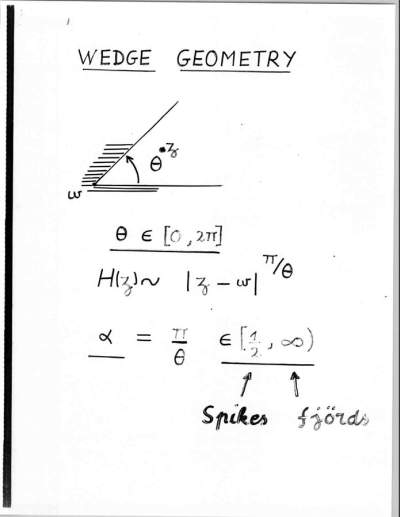 WEDGE GEOMETRY
θ z
w
θ ∈ [0, 2π]
H(z) ~ |z - w|^π/θ
α = π/θ ∈ [1/2, ∞)
Spikes fjörds